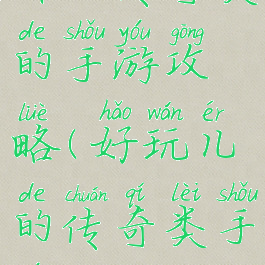 de shǒu yóu gōng
的手游攻
lüè hǎo wán ér
略(好玩儿
de chuán qí lèi shǒu
的传奇类手